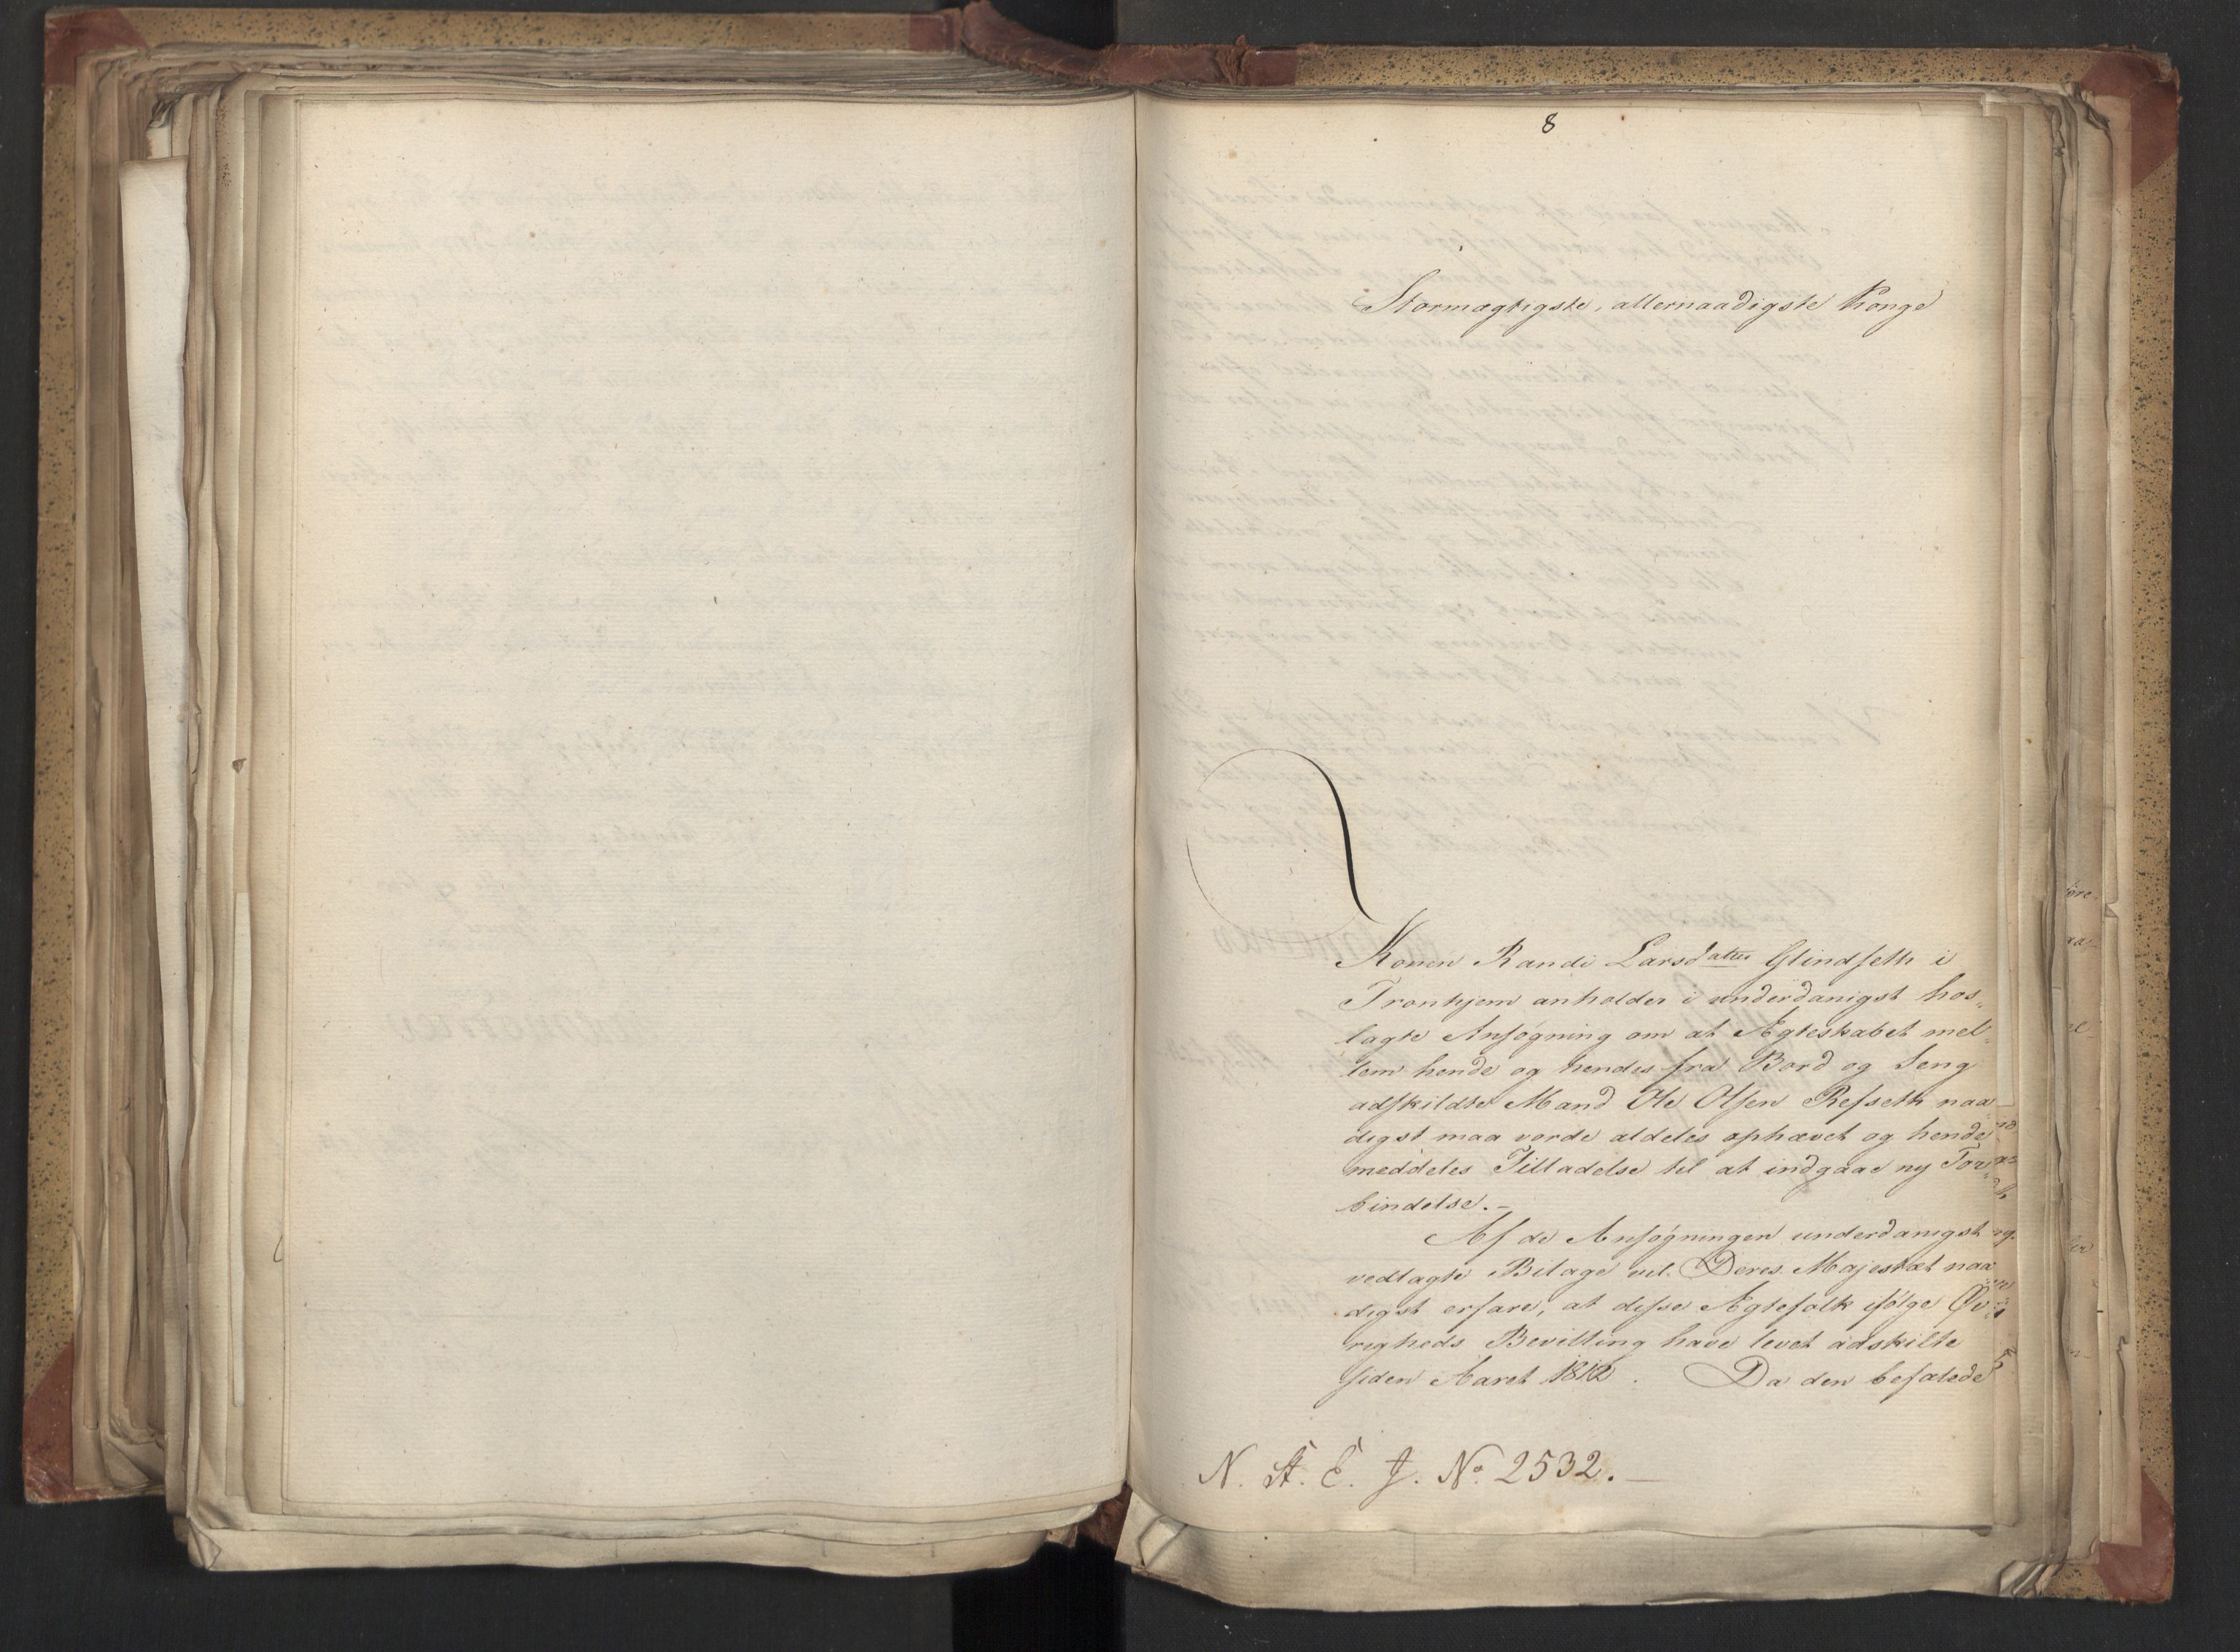 8
Stormægtigste, allernaadigste Konge
Konen Randi Larsdatter Glindseth i
Tronhjem anholder i underdanigst hos-
lagte Ansøgning om at Ægteskabet mel-
lem hende og hendes fra Bord og Seng
adskildte Mand Ole Olsen Refseth naa-
digst maa vorde aldeles ophævet og hende
meddeles Tilladelse til at indgaae ny For-
bindelse.-
Af de Ansøgningen underdanigst
vedlagte Bilage vil Deres Majestæt naa-
digst erfare, at disse Ægtefolk ifølge Øv-
righeds Bevilling have levet adskilte
siden Aaret 1812. Da den befalede
N. St. E. J. No. 2532.-